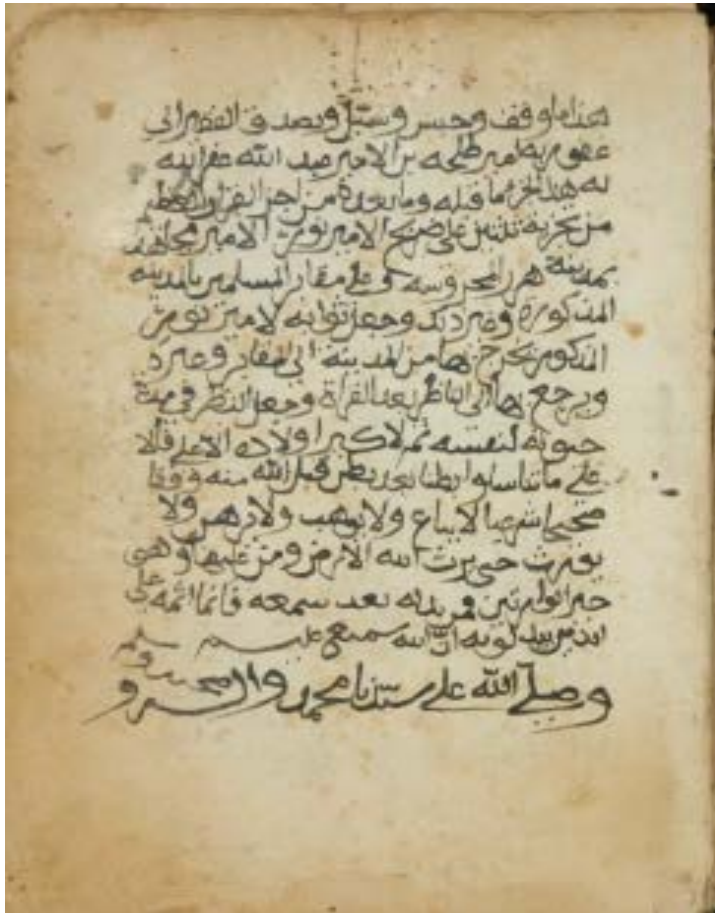 هذا ما وقف وحبس وسبل وتصدق الفقير الى
عفو ربه امير طلحه بن الامير عبد الله غفر الله
له هذا الجزء ما قبله وما بعده من اجزء القران العظيم
من تجزية ثلثين على ضريح الامير نور بن الامير مجاهد
بمدينة هرر المحروسه وعلى مقابر المسلمين بالمدينه
المذكوره وغير ذلك وجعل ثوابه لامير نور بن
المذكور يخرج بها من المدينة الى المقابر وغيره
ويرجع بها الى الناظر بعد القراة وجعل النظر في مدة
حيوته لنفسه ثم لاكبر اولاده الاعلى فالا
على ما تناسلوا بطنا بعد بطن قبل الله منه وقفا
صحيحا شرعيا لا يباع ولا يوهب ولا يرهن ولا
يورث حتى يرث الله الارض ومن عليها وهو
خير الوارثين فمن بدله بعد سمعه فانما اثمه على
الذين يبدلونه ان الله سميع عليم
وصلى الله على سيدنا محمد واله وصحبه وسلم